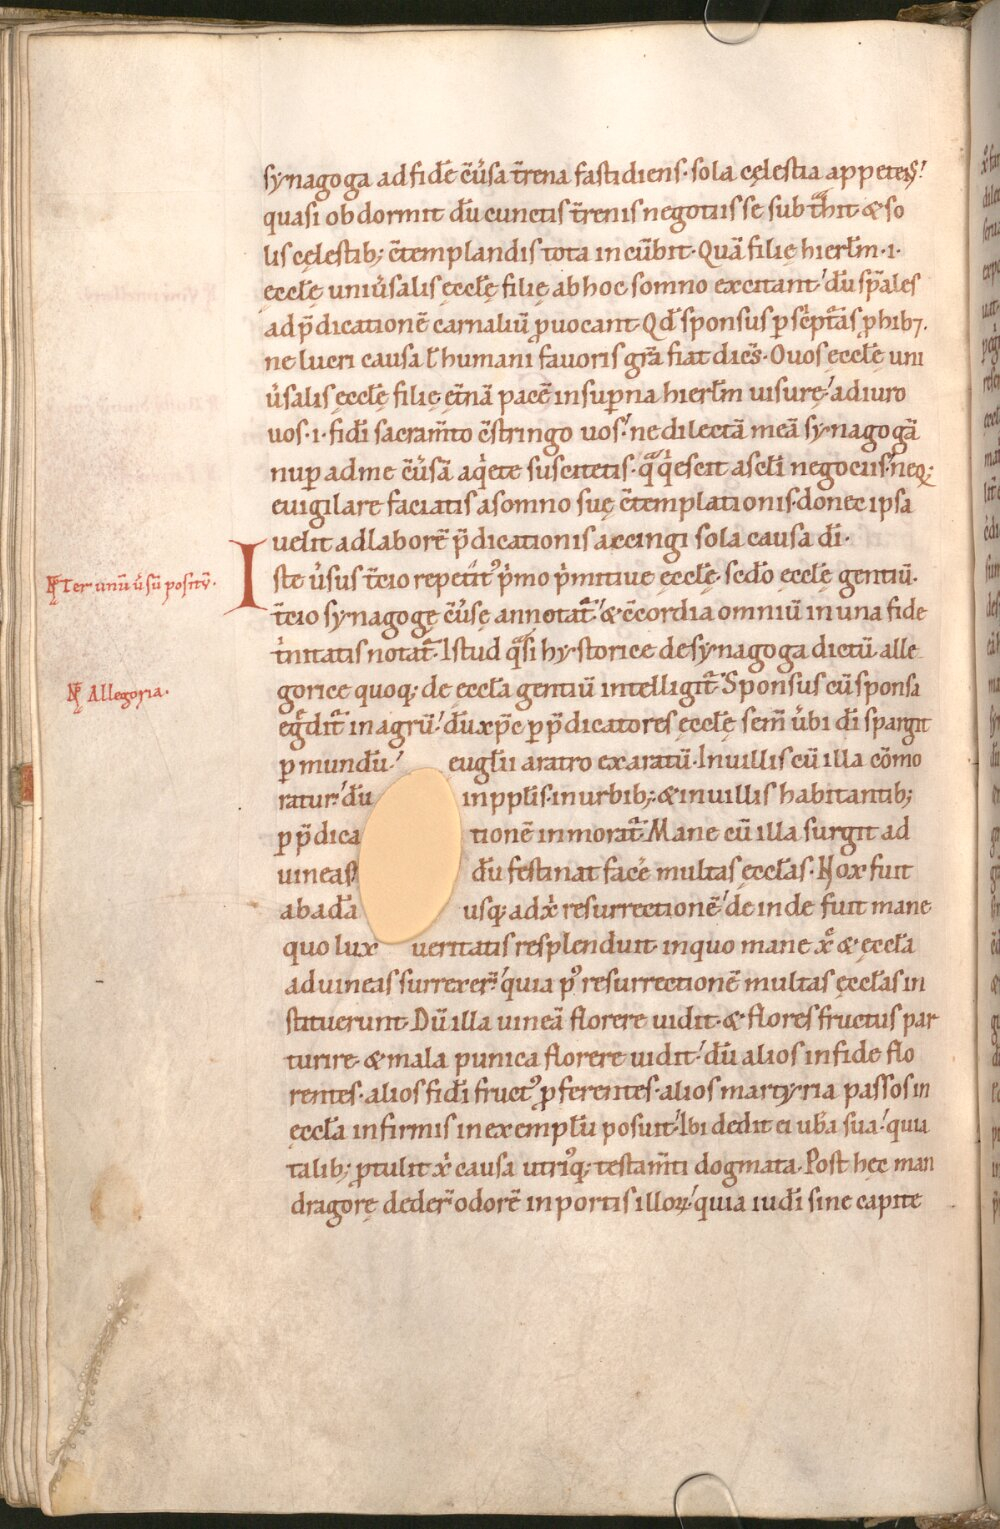 synagoga ad fidē c̄u̓sa t̄rena fastidiens· sola cęlestia appetens!
quasi obdormit dū cunctis t̄renis negotiis se subtͣhit & so
lis cęlestib; c̄templandis tota incūbit· Quā filię hierl̄m ·i·
ęccl̄ę uniu̓salis ęccl̄ę filię ab hoc somno excitant! dū sp̄ales
ad p̄dicationē carnaliū ꝓuocant· Qd̄ sponsus ꝑ sc̓ptͣas ꝓhib7.
ne lucri causa l̄ humani fauoris gr̄a fiat dicēs· O uos ęccl̄ę uni
u̓salis ęccl̄ę filię ęt̄nā pacē in suꝑna hierl̄m uisurę! adiuro
uos ·i· fidī sacram̄to c̄stringo uos! ne dilectā meā synagogā
nuꝑ ad me c̄u̓sā a qͥete suscitetis· qͣ qͥescit a sc̄li negociis! neq;
euigilare faciatis a somno suę c̄templationis· donec ipsa
uelit ad laborē p̄dicationis accingi sola causa dī·
Iste u̓sus t̄cio repetit᷒ pͥmo pͥmitiuę ęccl̄ę· scd̄o ęccl̄ę gentiū·
t̄cio synagogę c̄u̓sę annotat᷒! & c̄cordia omniū in una fide
tͥnitatis notat᷒· Istud qͣsi hystorice de synagoga dictū alle
gorice quoq; de ęccl̄a gentiū intelligit᷒· Sponsus cū sponsa
egͣdit᷒ in agrū! dū xp̄c ꝑ p̄dicatores ęccl̄ę sem̄ u̓bi dī spargit
ꝑ mundū! eugl̄ii aratro exaratū· In uillis cū illa cōmo
ratur! dū in ppl̄is· in urbib; & in uillis habitantib;
ꝑ p̄dicationē inmorat᷒· Mane cū illa surgit ad
uineas! dū festinat facē multas ęccl̄as· Nox fuit
ab adā usq; ad xͥ resurrectionē! deinde fuit mane
quo lux ueritatis resplenduit· in quo mane xͨ & ęccl̄a
ad uineas surrexer̄! quia pꝰ resurrectionē multas ęccl̄as in
stituerunt· Dū illa uineā florere uidit· & flores fructus par
turire· & mala punica florere uidit! dū alios in fide flo
rentes· alios fidī fructꝰ ꝓferentes· alios martyria passos in
ęccl̄a infirmis in exemplū posuit! Ibi dedit ei ub̓a sua! quia
talib; ꝓtulit xͥ causa utriꝰq; testam̄ti dogmata· Post hęc man
dragorę deder̄ odorē in portis illoꝝ! quia iudī sine capite
Ter unū u̓sū positū·
Allegoria·